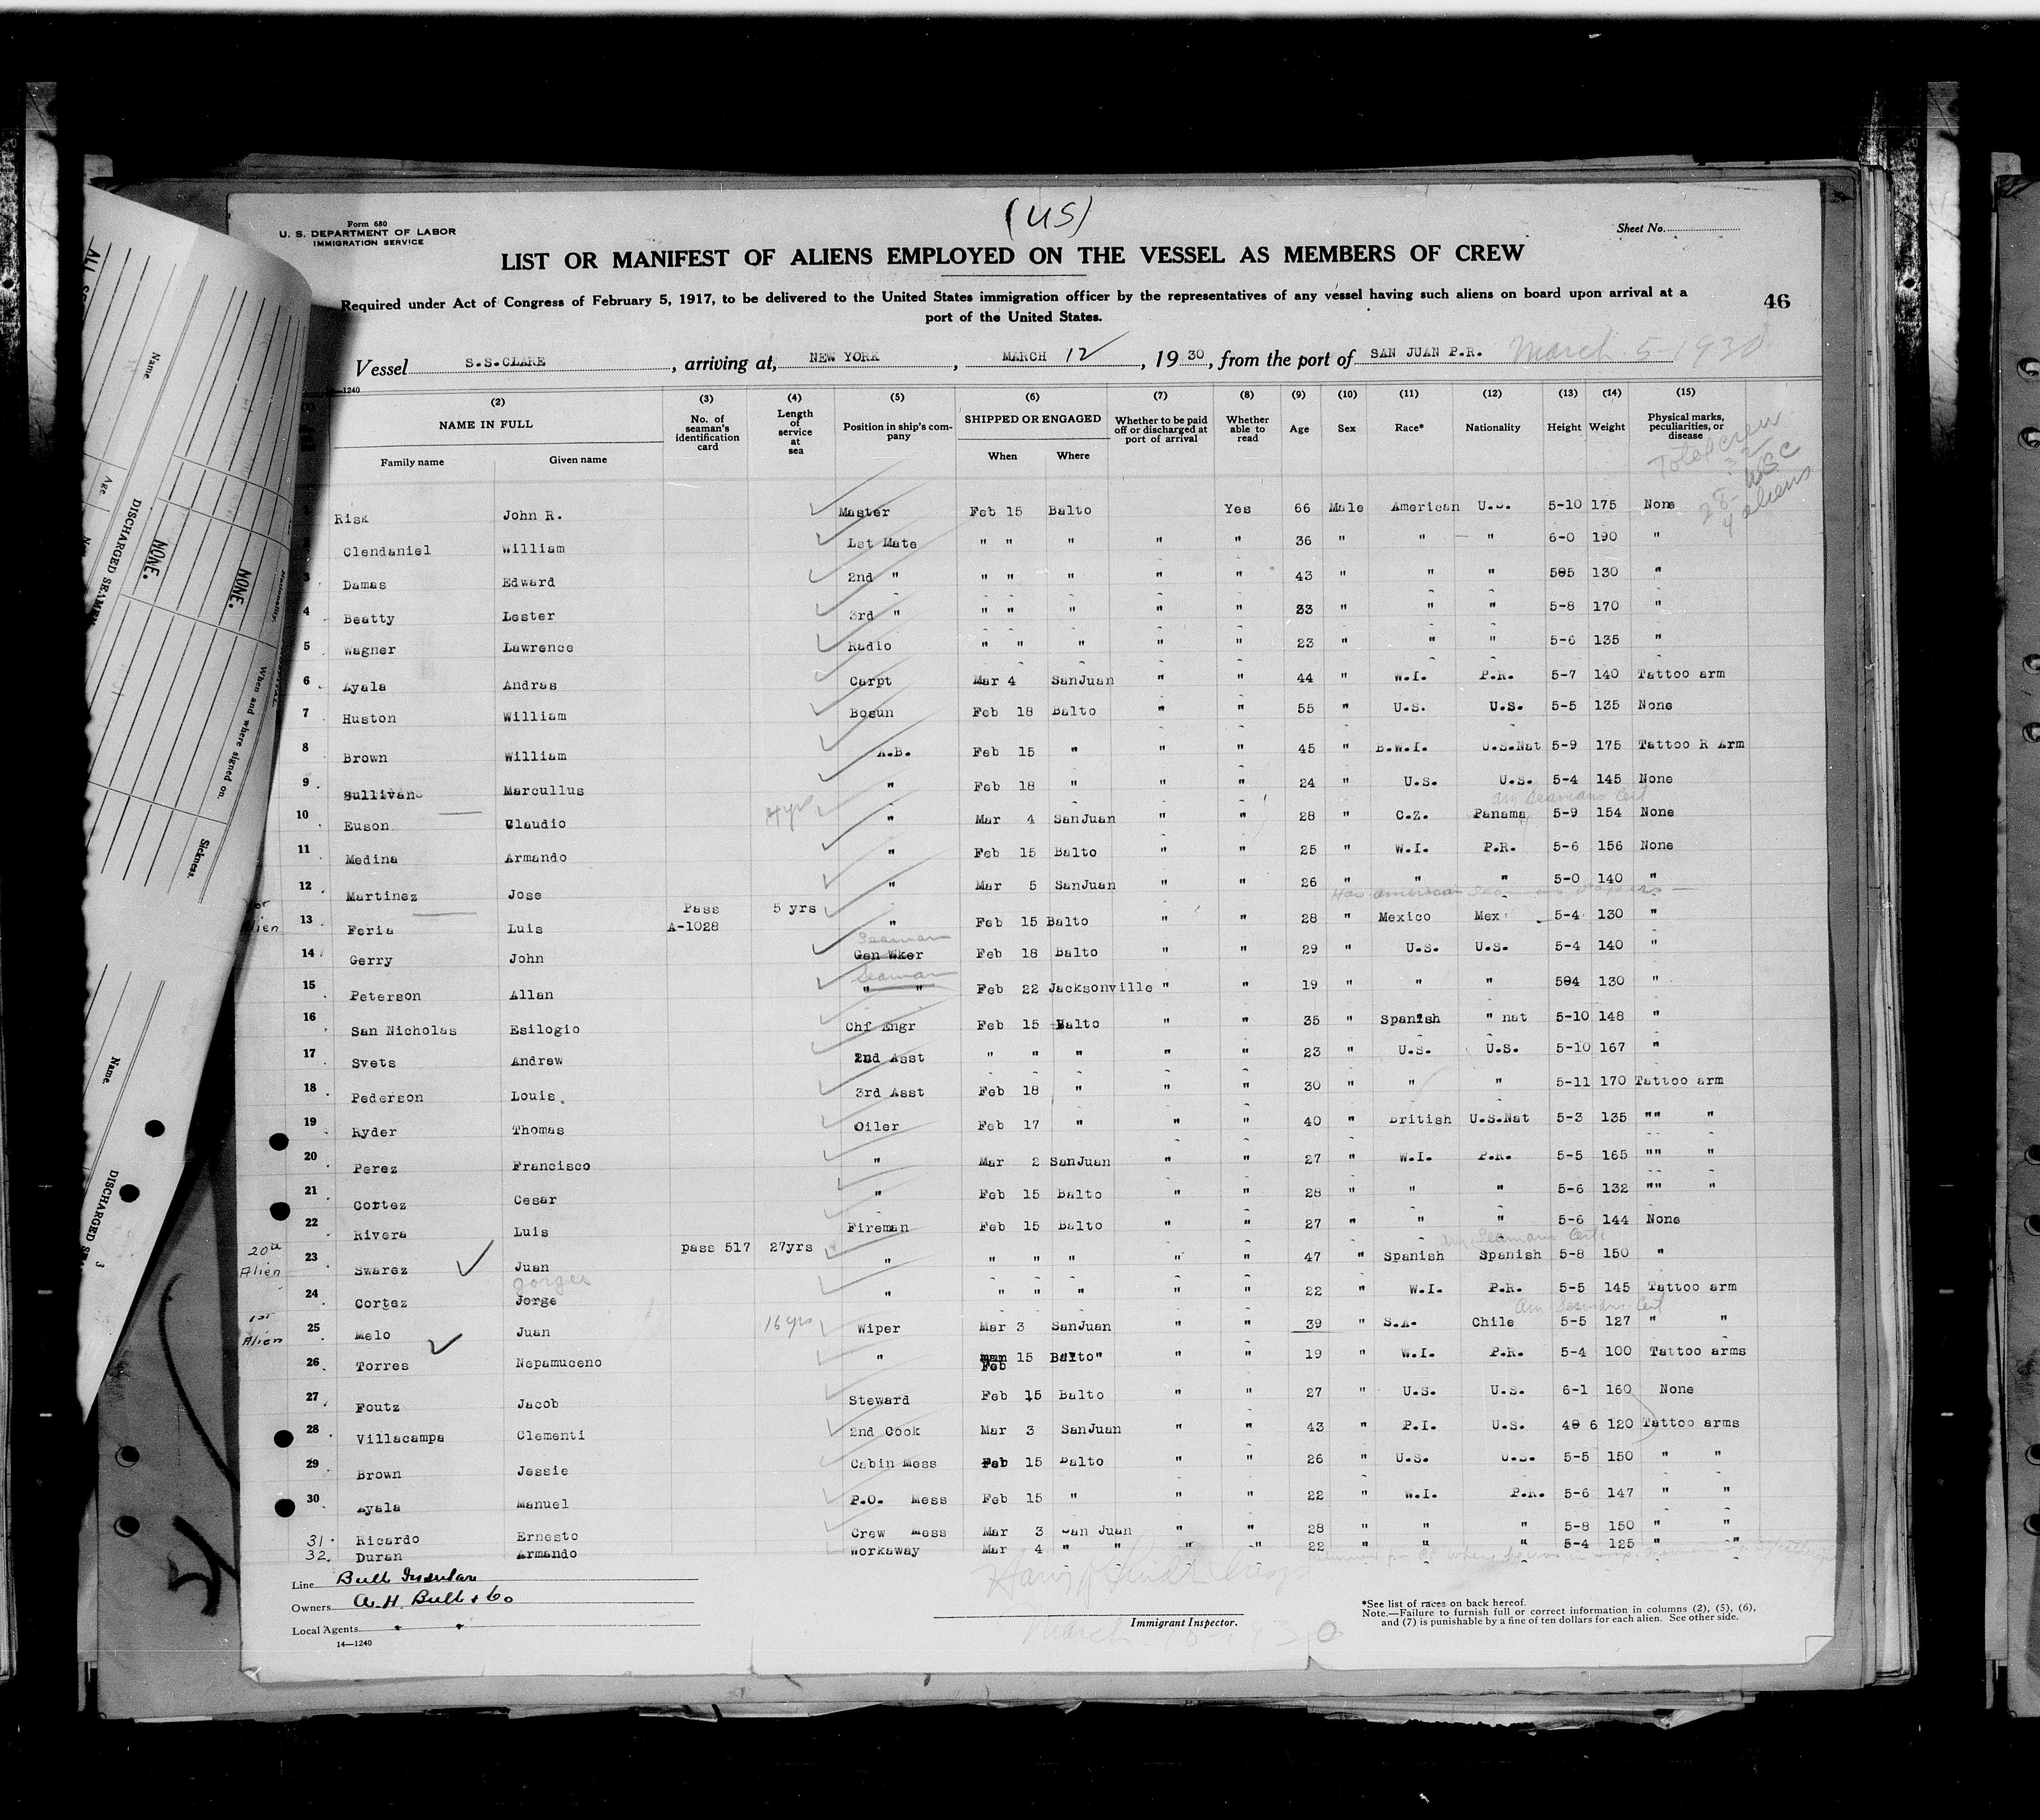 (US)
Form 680
U. S. DEPARTMENT OF LABOR
IMMIGRATION SERVICE
Sheet No.
LIST OR MANIFEST OF ALIENS EMPLOYED ON THE VESSEL AS MEMBERS OF CREW
Required under Act of Congress of February 5, 1917, to be delivered to the United States immigration officer by the representatives of any vessel having such aliens on board upon arrival at a
port of the United States.
46
Vessel S.S.CLARE, arriving at, NEW YORK, MARCH 12, 1930, from the port of SAN JUAN P.R. March 5-1930
1240
(2) (3) (4) (5) (6) (7) (8) (9) (10) (11) (12) (13) (14) (15)
NAME IN FULL Family name Given name No. of seaman's identification card Length of service at sea Position in ship's company SHIPPED OR ENGAGED When Where Whether to be paid off or discharged at port of arrival Whether able to read Age Sex Race* Nationality Height Weight Physical marks, peculiarities, or disease
Total crew
32
28- USC
4 aliens
Risk John R. Master Feb 15 Balto Yes 66 Male American U.S. 5-10 175 None
Clendaniel William 1st Mate " " " " " 36 " " " 6-0 190 "
3 Damas Edward 2nd " " " " " " 43 " " " 505 130 "
4 Beatty Lester 3rd " " " " " " 33 " " " 5-8 170 "
5 Wagner Lawrence Radio " " " " " 23 " " " 5-6 135 "
6 Ayala Andras Carpt Mar 4 SanJuan " " 44 " W.I. P.R. 5-7 140 Tattoo arm
7 Huston William Bosun Feb 18 Balto " " 55 " U.S. U.S. 5-5 135 None
8 Brown William A.B. Feb 15 " " " 45 " B.W.I. U.S.Nat 5-9 175 Tattoo R Arm
9 Sullivan Marcullus " Feb 18 " " " 24 " U.S. U.S. 5-4 145 None
Am Seamans Cert
10 Euson Claudio 4yrs " Mar 4 SanJuan " " 28 " C.Z. Panama 5-9 154 None
11 Medina Armando " Feb 15 Balto " " 25 " W.I. P.R. 5-6 156 None
12 Martinez Jose " Mar 5 SanJuan " " 26 " " " 5-0 140 "
Has American Seamans papers
13 Feria Luis Pass A-1028 5 yrs " Feb 15 Balto " " 28 " Mexico Mex 5-4 130 "
Seaman
14 Gerry John Gen Wker Feb 18 Balto " " 29 " U.S. U.S. 5-4 140 "
Seaman
15 Peterson Allan " " Feb 22 Jacksonville " " 19 " " " 504 130 "
16 San Nicholas Esilogio Chf Engr Feb 15 Balto " " 35 " Spanish " nat 5-10 148 "
17 Svets Andrew 2nd Asst " " " " " 23 " U.S. U.S. 5-10 167 "
18 Pederson Louis. 3rd Asst Feb 18 " " " 30 " " " 5-11 170 Tattoo arm
19 Ryder Thomas Oiler Feb 17 " " " 40 " British U.S.Nat 5-3 135 "" "
20 Perez Francisco " Mar 2 SanJuan " " 27 " W.I. P.R. 5-5 165 "" "
21 Cortez Cesar " Feb 15 Balto " " 28 " " " 5-6 132 "" "
22 Rivera Luis Fireman Feb 15 Balto " " 27 " " " 5-6 144 None
Am Seamans Cert
Alien 23 Swarez Juan pass 517 27yrs " " " " " " 47 " Spanish Spanish 5-8 150 "
Jorges
24 Cortez Jorge " " " " " " 22 " W.I. P.R. 5-5 145 Tattoo arm
Am Seamans Cert
1st Alien 25 Melo Juan 16 yrs Wiper Mar 3 SanJuan " " 39 " S.A. Chile 5-5 127 " "
26 Torres Nepamuceno " Feb 15 Balto" " " 19 " W.I. P.R. 5-4 100 Tattoo arms
27 Foutz Jacob Steward Feb 15 Balto " " 27 " U.S. U.S. 6-1 160 None
28 Villacampa Clementi 2nd Cook Mar 3 SanJuan " " 43 " P.I. U.S. 40 6 120 Tattoo arms
29 Brown Jessie Cabin Mess Feb 15 Balto " " 26 " U.S. U.S. 5-5 150 " "
30 Ayala Manuel P.O. Mess Feb 15 " " " 22 " W.I. P.R. 5-6 147 " "
31 Ricardo Ernesto Crew Mess Mar 3 San Juan " " 28 " " " 5-8 150 " "
32. Duran Armando Workaway Mar 4 " " " " 22 " " " 5-4 125 " "
Line Bull Insular
Owners A.H. Bull & Co
Local Agents " "
14—1240
Immigrant Inspector.
*See list of races on back hereof.
Note.—Failure to furnish full or correct information in columns (2), (5), (6),
and (7) is punishable by a fine of ten dollars for each alien. See other side.
Name
Age
DISCHARGED SEAMEN
NONE.
NONE.
Nationality.
When and where signed on.
Sickness.
Name.
DISCHARGED